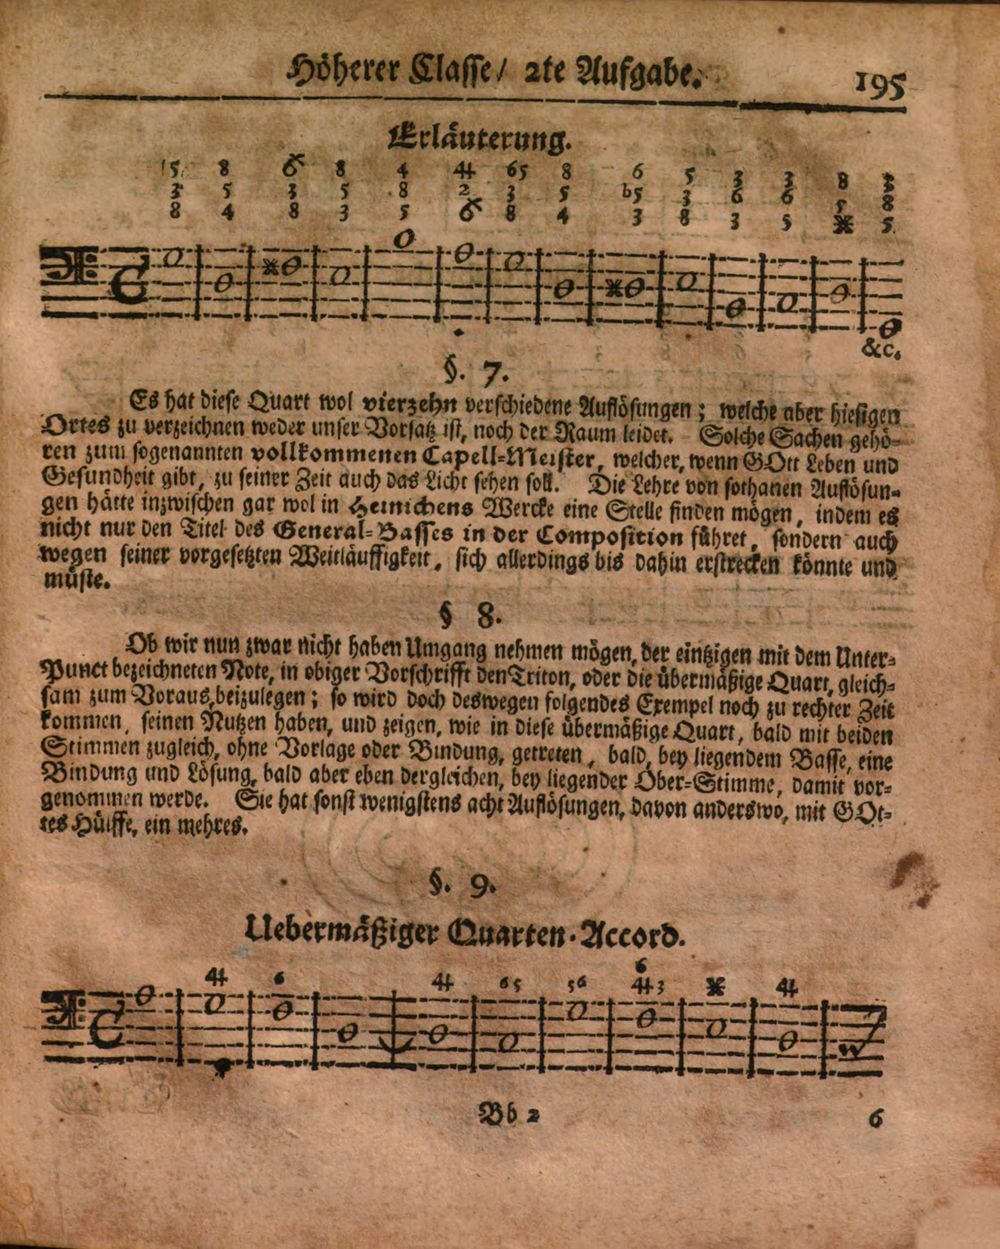 Höherer Classe/ 2te Aufgabe.
195
Erläuterung.
5 8 6 8 4 4 65 8 6 5 3 3 8 3
3 5 3 5 8 2 3 5 b5 3 6 6 5 8
8 4 8 3 5 6 8 4 3 8 3 5 5
&c.
§. 7.
Es hat diese Quart wol vierzehn verschiedene Auflösungen; welche aber hiesigen
Ortes zu verzeichnen weder unser Vorsatz ist, noch der Raum leidet. Solche Sachen gehö-
ren zum sogenannten vollkommenen Capell-Meister, welcher, wenn GOtt Leben und
Gesundheit gibt, zu seiner Zeit auch das Licht sehen soll. Die Lehre von sothanen Auflösun-
gen hätte inzwischen gar wol in Heinichens Wercke eine Stelle finden mögen, indem es
nicht nur den Titel des General-Basses in der Composition führet, sondern auch
wegen seiner vorgesetzten Weitläuffigkeit, sich allerdings bis dahin erstrecken könnte und
müste.
§ 8.
Ob wir nun zwar nicht haben Umgang nehmen mögen, der eintzigen mit dem Unter-
Punct bezeichneten Note, in obiger Vorschrifft den Triton, oder die übermäßige Quart, gleich-
sam zum Voraus beizulegen; so wird doch deswegen folgendes Exempel noch zu rechter Zeit
kommen, seinen Nutzen haben, und zeigen, wie in diese übermäßige Quart, bald mit beiden
Stimmen zugleich, ohne Vorlage oder Bindung, getreten, bald, bey liegendem Basse, eine
Bindung und Lösung, bald aber eben dergleichen, bey liegender Ober-Stimme, damit vor-
genommen werde. Sie hat sonst wenigstens acht Auflösungen, davon anderswo, mit GOt-
tes Hülffe, ein mehres.
§. 9.
Uebermäßiger Quarten-Accord.
6
4 6 4 65 56 43 4
Bb 2
6